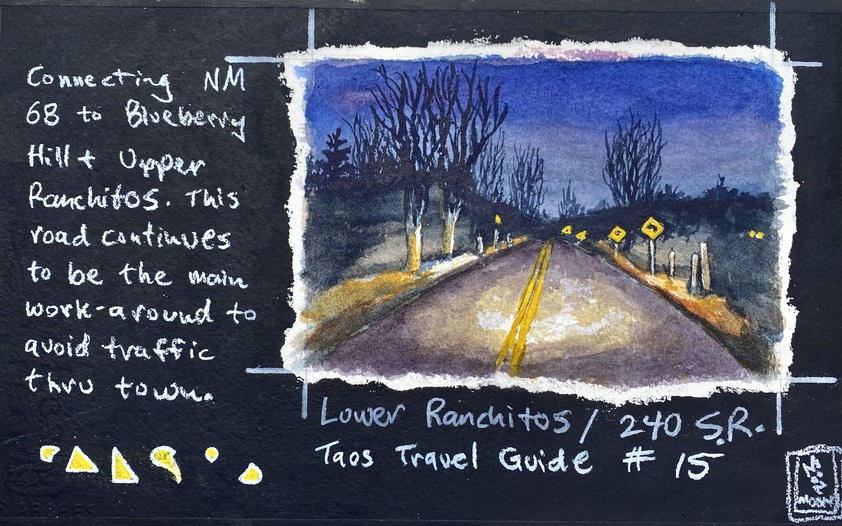 Connecting NM
68 to Blueberry
Hill + Upper
Ranchitos. This
road continues
to be the main
work-around to
avoid traffic
thru town.
Lower Ranchitos / 240 S.R.
Taos Travel Guide # 15